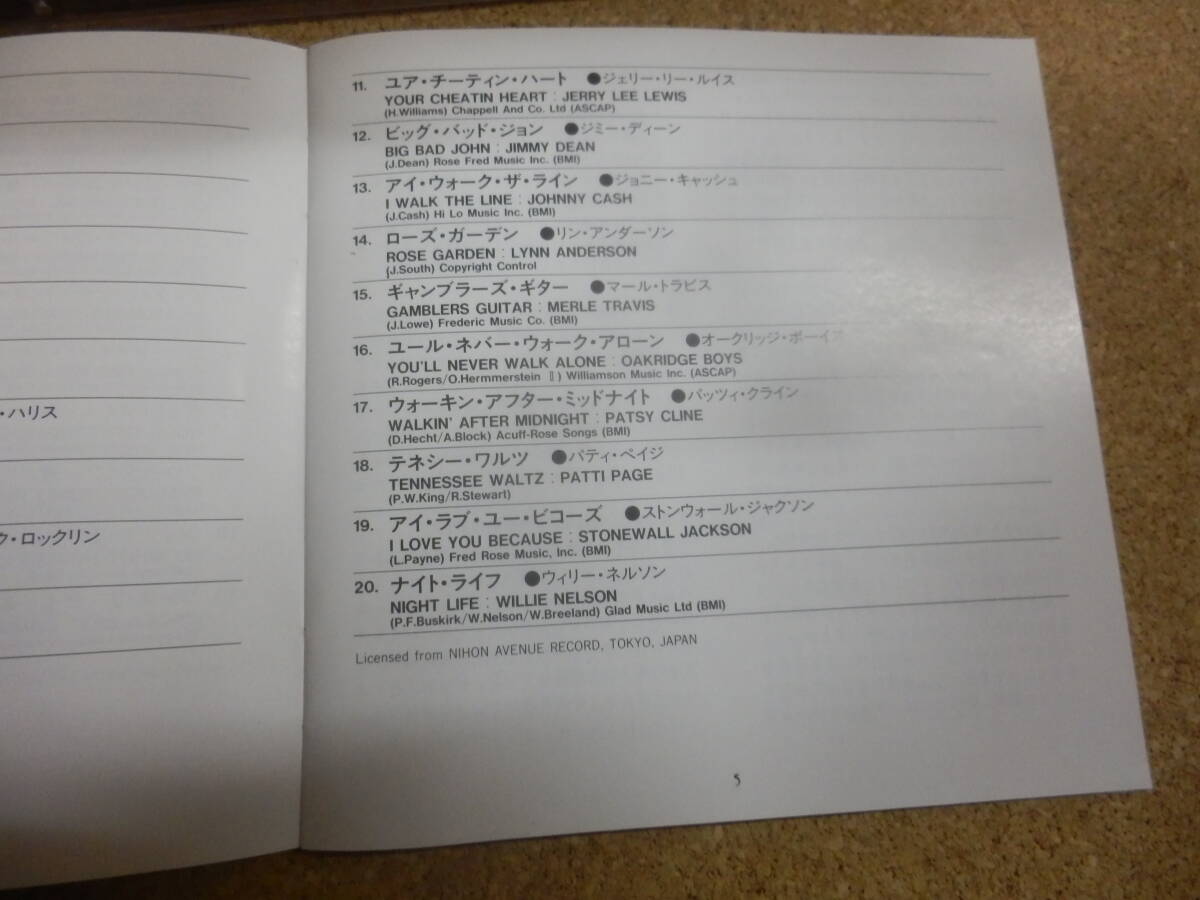 ・ハリス
ク・ロックリン
11. ユア・チーティン・ハート ●ジェリー・リー・ルイス
YOUR CHEATIN HEART : JERRY LEE LEWIS
(H.Williams) Chappell And Co. Ltd (ASCAP)
12. ビッグ・バッド・ジョン ●ジミー・ディーン
BIG BAD JOHN : JIMMY DEAN
(J.Dean) Rose Fred Music Inc. (BMI)
13. アイ・ウォーク・ザ・ライン ●ジョニー・キャッシュ
I WALK THE LINE : JOHNNY CASH
(J.Cash) Hi Lo Music Inc. (BMI)
14. ローズ・ガーデン ●リン・アンダーソン
ROSE GARDEN : LYNN ANDERSON
(J.South) Copyright Control
15. ギャンブラーズ・ギター ●マール・トラビス
GAMBLERS GUITAR : MERLE TRAVIS
(J.Lowe) Frederic Music Co. (BMI)
16. ユール・ネバー・ウォーク・アローン ●オークリッジ・ボーイズ
YOU'LL NEVER WALK ALONE : OAKRIDGE BOYS
(R.Rogers/O.Hermmerstein Ⅱ) Williamson Music Inc. (ASCAP)
17. ウォーキン・アフター・ミッドナイト ●パッツィ・クライン
WALKIN' AFTER MIDNIGHT : PATSY CLINE
(D.Hecht/A.Block) Acuff-Rose Songs (BMI)
18. テネシー・ワルツ ●パティ・ペイジ
TENNESSEE WALTZ : PATTI PAGE
(P.W.King/R.Stewart)
19. アイ・ラブ・ユー・ビコーズ ●ストンウォール・ジャクソン
I LOVE YOU BECAUSE : STONEWALL JACKSON
(L.Payne) Fred Rose Music, Inc. (BMI)
20. ナイト・ライフ ●ウィリー・ネルソン
NIGHT LIFE : WILLIE NELSON
(P.F.Buskirk/W.Nelson/W.Breeland) Glad Music Ltd (BMI)
Licensed from NIHON AVENUE RECORD, TOKYO, JAPAN
5